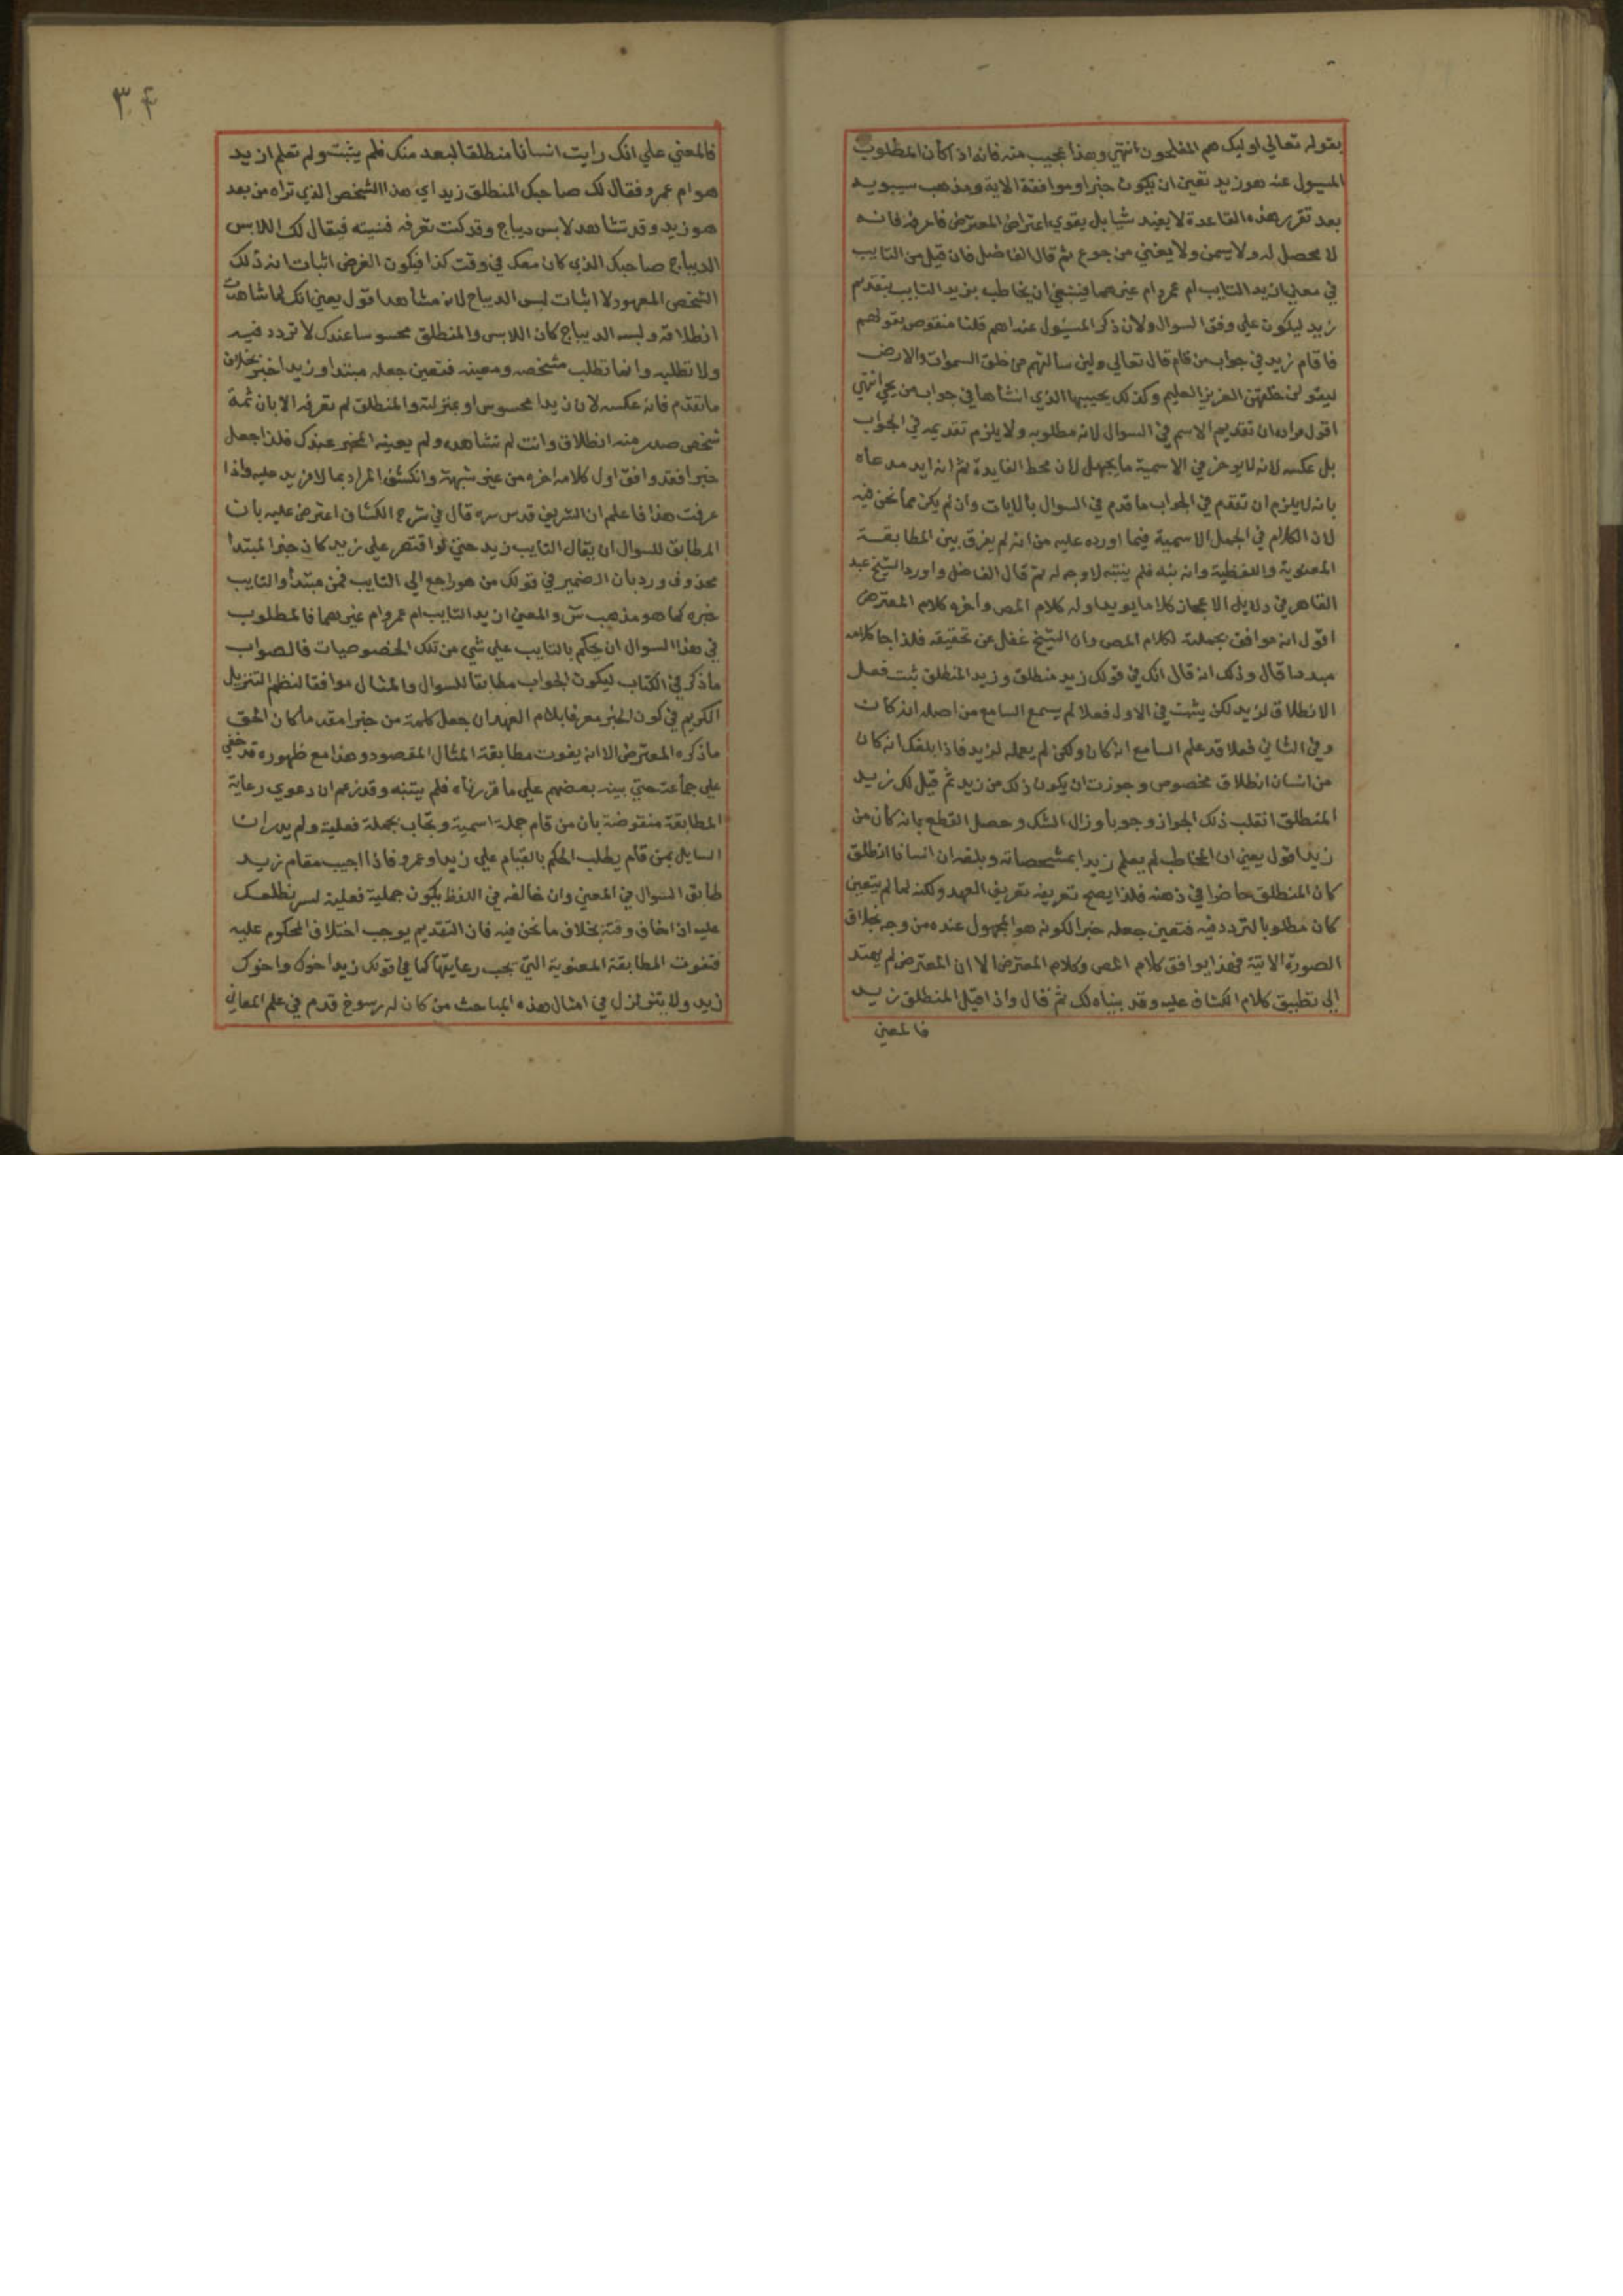 بقوله تعالي اوليك هم المفلحون انتهي وهذا عجيب منه فانه اذا كان المطلوب
المسيول عنه هو زيد تعين ان يكون خبرا وموافقة الاية ومذهب سيبويه
بعد تقرر هذه القاعدة لا يفيد شيا بل يقوي اعتراض المعترض فاعرفه فانه
لا محصل له ولا يسمن ولا يغني من جوع ثم قال الفاضل فان قيل من التايب
في معني ازيد التايب ام عمرو ام غيرهما فينبغي ان يخاطب بزيد التايب بتقديم
زيد ليكون علي وفق السوال ولان ذكر المسيول عنه اهم قلنا منقوص بقولهم
قام زيد في جواب من قام قال تعالي ولين سالتهم من خلق السموات والارض
ليقولن خلقهن العزيز العليم وكذلك يحييها الذي انشاها في جواب من يحي انتهي
اقول مراده ان تقديم الاسم في السوال لانه مطلوبه ولا يلزم تقديمه في الجواب
بل عكسه لانه لا يوخر في الاسمية ما يجهل لان محط الفايدة ثم انه ايد مدعاه
بانه لا يلزم ان تقدم في الجواب ما قدم في السوال بالايات وان لم يكن مما نحن فيه
لان الكلام في الجمل الاسمية فيما اورده عليه من انه لم يفرق بين المطابقة
المعنوية واللفظية وانه نبه فلم ينتبه لا وجه له ثم قال الفاضل واورد الشيخ عبد
القاهر في دلايل الاعجاز كلاما يويد اوله كلام المص واخره كلام المعترض
اقول انه موافق بجملته لكلام المص وان الشيخ غفل عن تحقيقه فلذا جا كلامه
قال وذلك انه قال انك في قولك زيد منطلق وزيد المنطلق ثبت فعل
الانطلاق لزيد لكن يثبت في الاول فعلا لم يسمع السامع من اصله انه كان
وفي الثاني فعلا قد علم السامع انه كان ولكن لم يعمله لزيد فاذا بلغك انه كان
من انسان انطلاق مخصوص وجوزت ان يكون ذلك من زيد ثم قيل لك زيد
المنطلق انقلب ذلك الجواز وجوبا وزال الشك وحصل القطع بانه كان من
زيد اقول يعني ان المخاطب لم يعلم زيدا بمشخصاته وبلغه ان انسانا انطلق
كان المنطلق حاضرا في ذهنه فلذا يصح تعريفه تعريف العهد ولكنه لما لم يتعين
كان مطلوبا لتردد فيه فتعين جعله خبرا لكونه هو المجهول عنده من وجه بخلاف
الصورة الاتية فهذا يوافق كلام المص وكلام المعترض الا ان المعترض لم يهتد
الي تطبيق كلام الكشاف عليه وقد بيناه لك ثم قال واذا قيل المنطلق زيد
فالمعني
٣٤
فالمعني علي انك رايت انسانا منطلقا لبعد منك فلم يثبت ولم تعلم ازيد
هو ام عمرو فقال لك صاحبك المنطلق زيد اي هذا الشخص الذي تراه من بعد
هو زيد وقد تشاهد لابس ديباج وقد كنت تعرفه فنيته فيقال لك اللابس
الديباج صاحبك الذي كان معك في وقت كذا فيكون الغرض اثبات انه ذلك
الشخص المعهود لا اثبات لبس الديباج لانه مشاهد اقول يعني انك لما شاهدت
انطلاقه ولبسه الديباج كان اللابس والمنطلق محسوسا عندك لا تردد فيه
ولا تطلبه وانما تطلب مشخصه ومعينه فتعين جعله مبتدا وزيد اخبر بخلاف
ما تقدم فانه عكسه لان زيدا محسوس او بمنزلته والمنطلق لم تعرفه الا بان ثمة
شخص صدر منه انطلاق وانت لم تشاهده ولم يعينه المخبر عندك فلذا جعل
خبرا فقد وافق اول كلامه اخره من غير شبهة وانكشف المراد بما لا مزيد عليه واذا
عرفت هذا فاعلم ان الشريف قدس سره قال في شرح الكشاف اعترض عليه بان
المطابق للسوال ان يقال التايب زيد حتي لو اقتصر علي زيد كان خبرا لمبتدا
محذوف ورد بان الضمير في قولك من هو راجع الي التايب فمن مبتدا والتايب
خبره كما هو مذهب س والمعني ازيد التايب ام عمرو ام غيرهما فالمطلوب
في هذا السوال ان يحكم بالتايب علي شي من تلك الخصوصيات فالصواب
ما ذكر في الكتاب ليكون الجواب مطابقا للسوال والمثال موافقا لنظم التنزيل
الكريم في كون الخبر معرفا بلام العهد ان جعل كلمة من خبرا مقدما كان الحق
ما ذكره المعترض الا انه يفوت مطابقة المثال المقصود وهذا مع ظهوره قد خفي
علي جماعة حتي بينه بعضهم علي ما قررناه فلم يتنبه وقد زعم ان دعوي رعاية
المطابقة منقوضة بان من قام جملة اسمية وتجاب بجملة فعلية ولم يدر ان
السايل بمن قام يطلب الحكم بالقيام علي زيد او عمرو فاذا اجيب مقام زيد
طابق السوال في المعني وان خالفه في اللفظ بكون جملية فعلية لسر نطلعك
عليه ان اخاف وقته بخلاف ما نحن فيه فان التقديم يوجب اختلاف المحكوم عليه
فتفوت المطابقة المعنوية التي يجب رعايتها كما في قولك زيد اخوك واخوك
زيد ولا يتزلزل في امثال هذه المباحث من كان له رسوخ قدم في علم المعاني